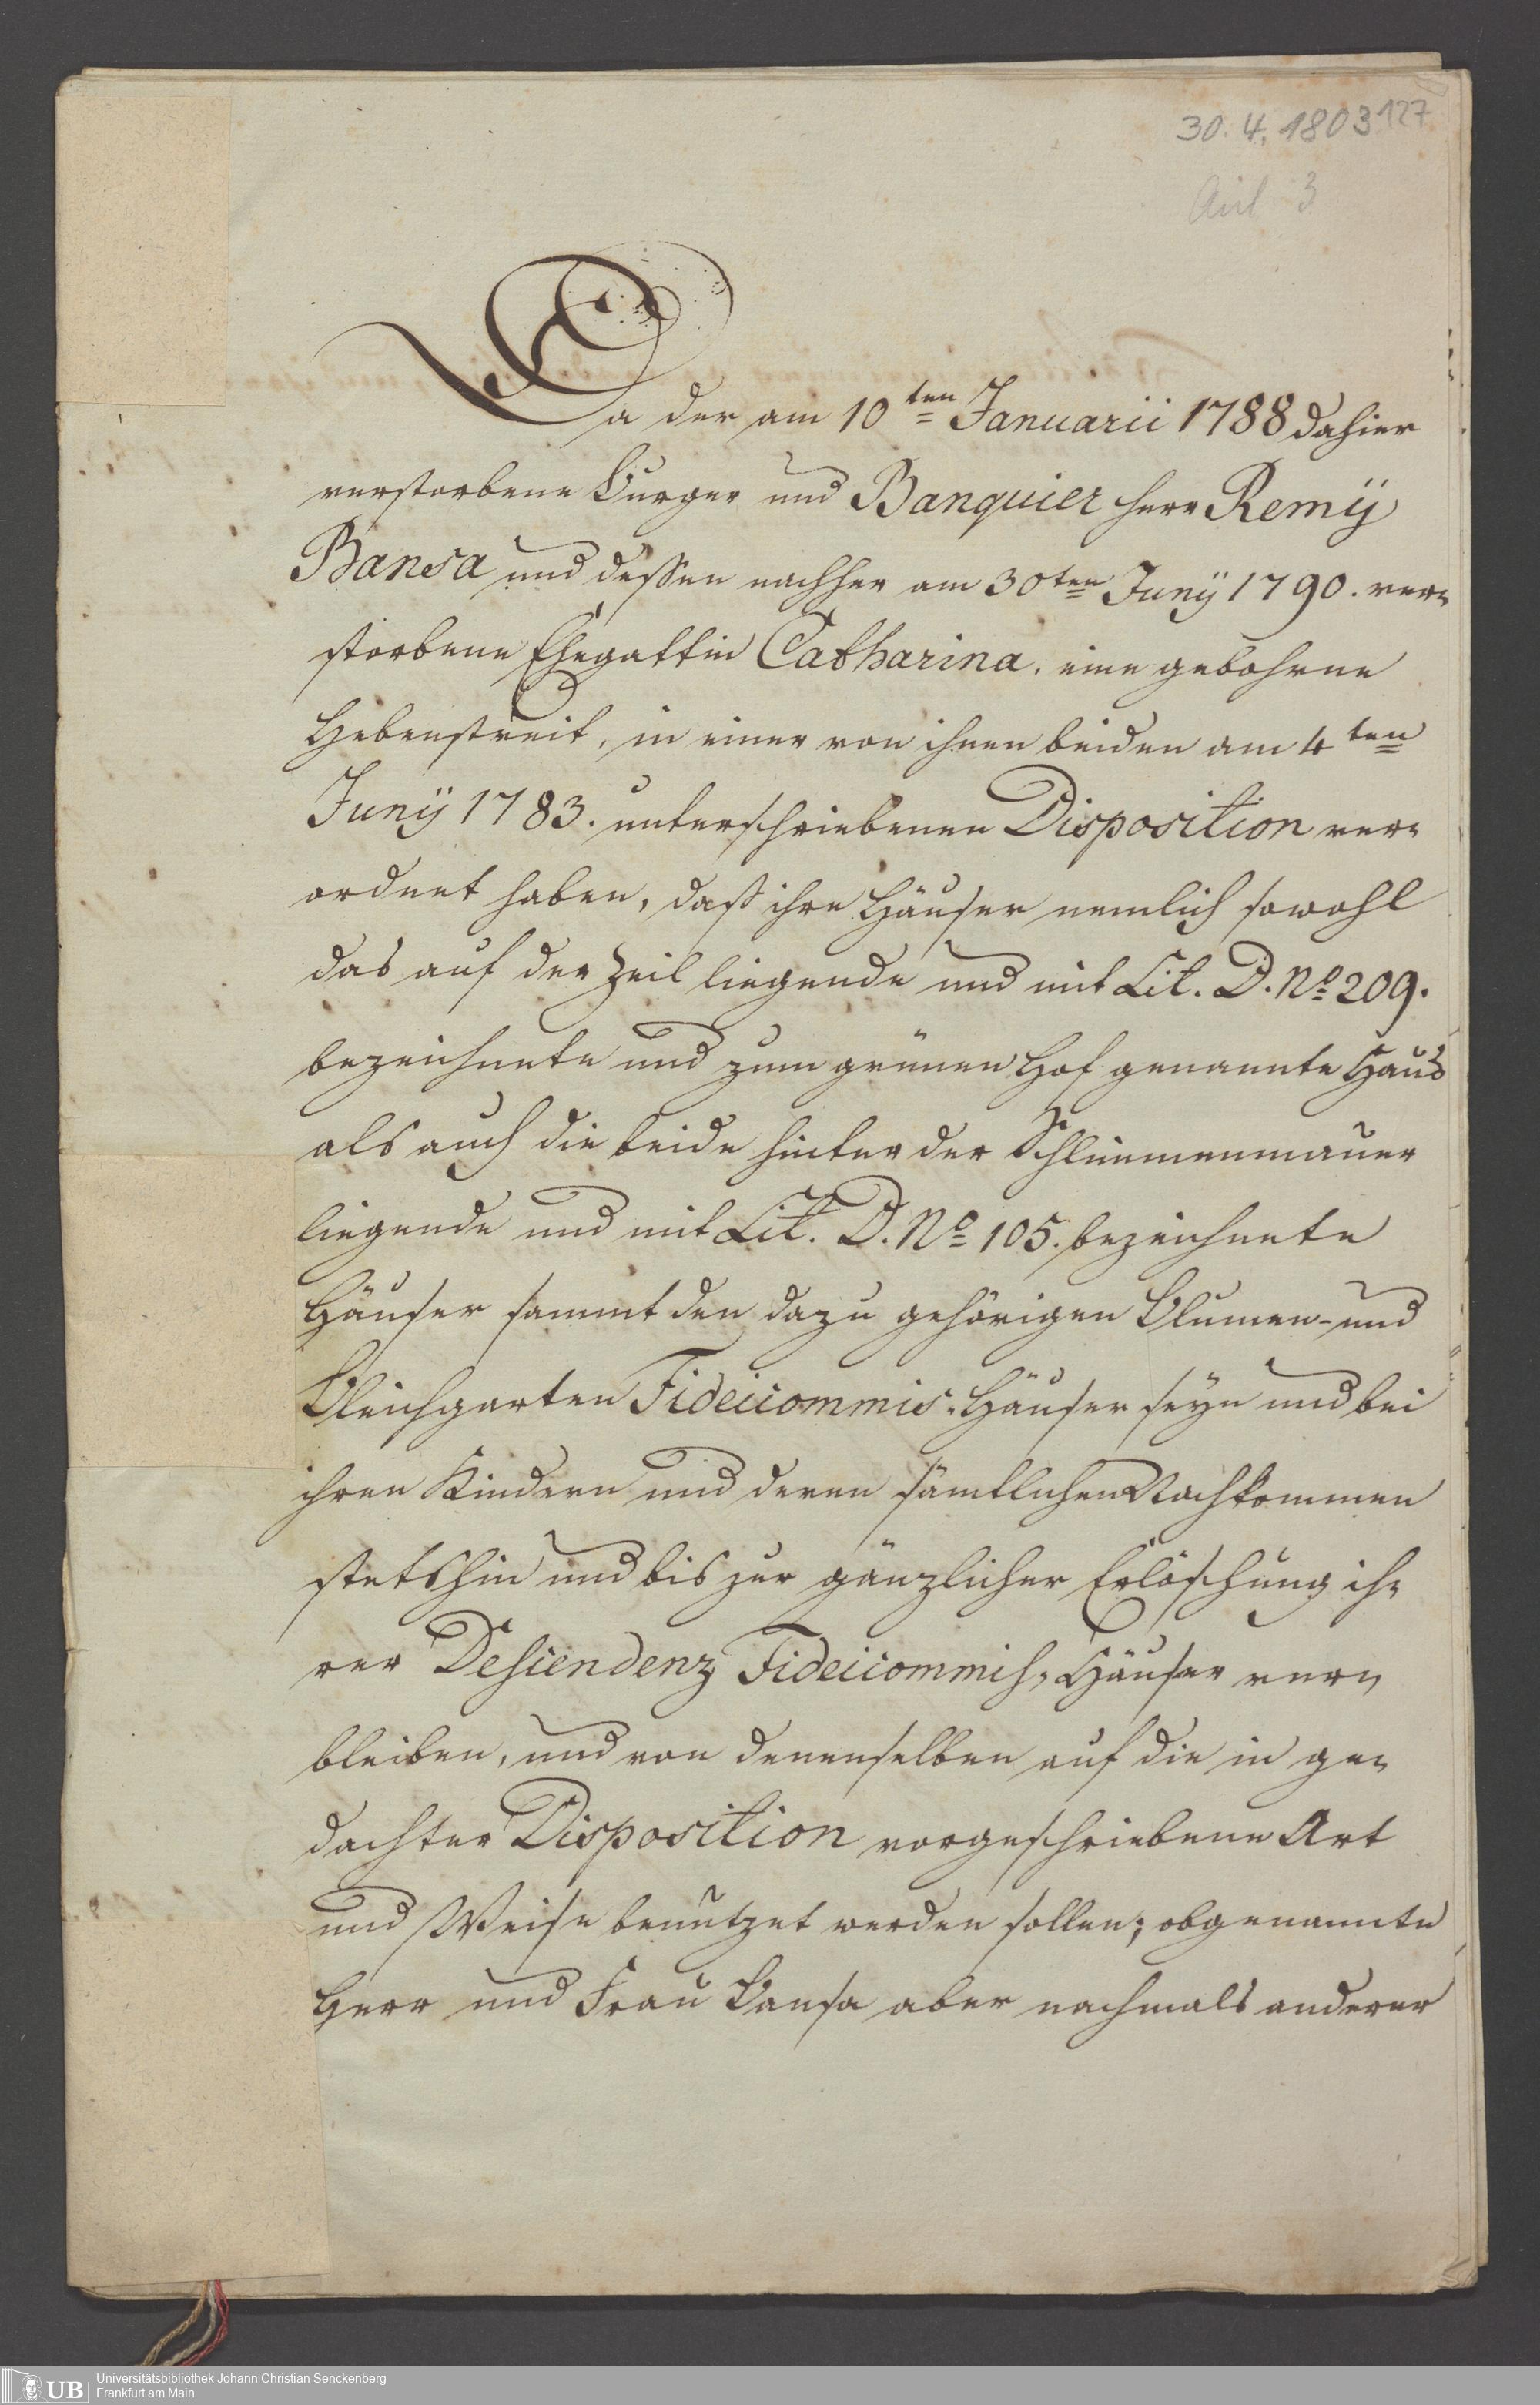 30. 4. 1803 127
Da der am 10ten Januarii 1788 dahier
verstorbene Burger und Banquier Herr Remÿ
Bansa und dessen nachher am 30ten Junÿ 1790. ver-
storbene Ehegattin Catharina, eine gebohrne
Hebenstreit, in einer von ihnen beiden am 4ten
Junÿ 1783. unterschriebenen Disposition ver-
ordnet haben, daß ihre Häuser nemlich sowohl
das auf der Zeil liegende und mit Lit. D. No 209.
bezeichnete und zum grünen Hof genannte Haus
als auch die beide hinter der Schlimmenmauer
liegende und mit Lit. D. No 105. bezeichnete
Häuser sammt den dazu gehörigen Blumen- und
Bleichgarten Fideicommis-Häuser seyn und bei
ihren Kindern und deren sämtlichen Nachkommen
stetshin und bis zur gänzlicher Erlöschung ih-
rer Descendenz Fideicommiß-Häuser ver-
bleiben, und von denenselben auf die in ge-
dachter Disposition vorgeschriebene Art
und Weise benutzet werden sollen; obgenannte
Herr und Frau Bansa aber nachmals anderer
UB Universitätsbibliothek Johann Christian Senckenberg
Frankfurt am Main